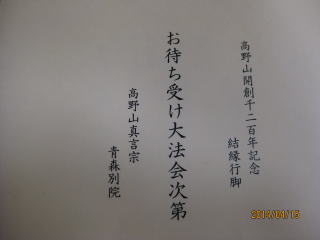 高野山開創千二百年記念
結縁行脚
お待ち受け大法会次第
高野山真言宗
青森別院
2014/04/13